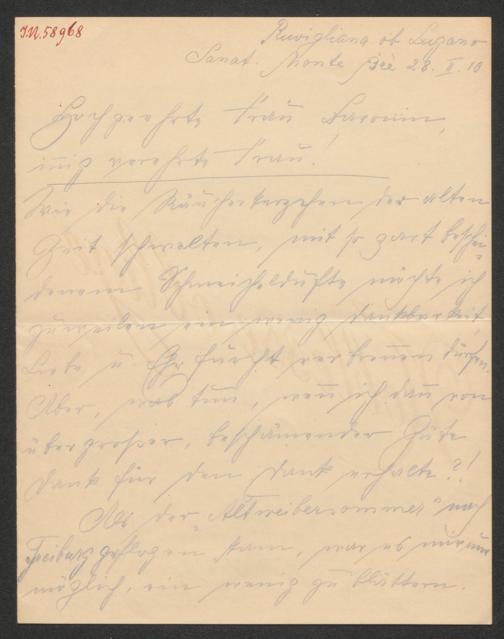 I.N. 58968
Ruvigliana ob Lugano
Sanat. Monte Brè 28. X. 10
Hochgeehrte Frau Baronin,
innig verehrte Frau!
Wie die Räucherkerzchen der alten
Zeit schwelten, mit so zart beschei=
denem Schmeicheldufte möchte ich
zuweilen ein wenig Dankbarkeit,
Liebe u. Ehrfurcht verbrennen dürfen.
Aber, was tun, wenn ich dann von
übergrosser, beschämender Güte
Dank für den Dank erhalte?!
Als der "Altweibersommer" nach
Freiburg geflogen kam, war es mir nur
möglich, ein wenig zu blättern.